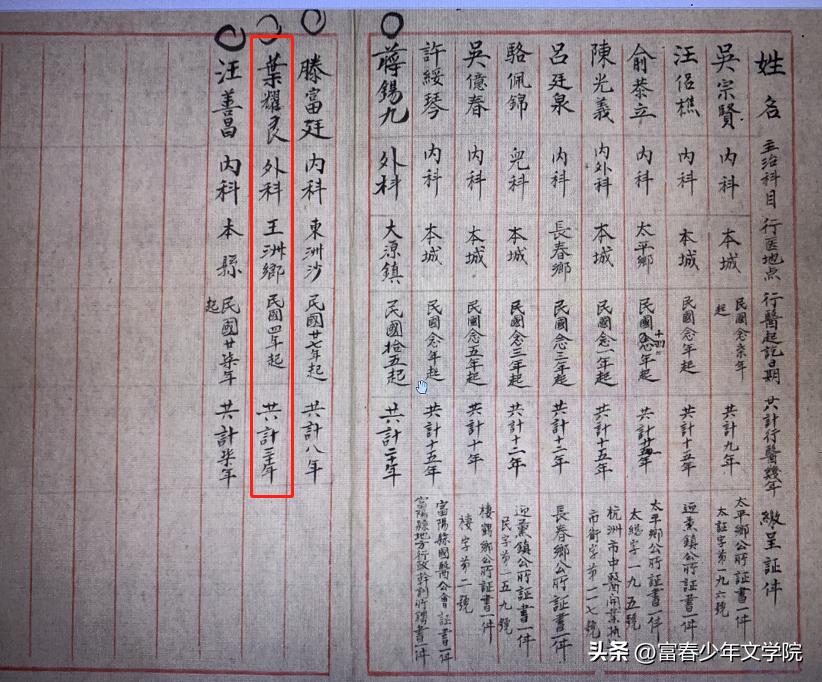 姓名 主治科目 行医地点 行醫起訖日期 共計行醫幾年 繳呈証件
吳宗賢 內科 本城 民國念柒年起 共計九年 太平鄉公所証書一件 太証字第一九六號
汪侶樵 內科 本城 民國念年起 共計十五年 迎薰鎮公所証書一件
俞恭立 內科 太平鄉 民國年起 共計年 太平鄉公所証書一件 太總字一九五號
陳光義 內外科 本城 民國念一年起 共計十五年 杭州市中醫開業執 市衛字第一一七號
呂廷泉 內科 長春鄉 民國念三年起 共計十二年 長春鄉公所証書一件
駱佩錦 兒科 本城 民國念三年起 共計十二年 迎薰鎮公所証書一件 民字第二五九號
吳億春 內科 本城 民國念五年起 共計十年 棲鶴鄉公所証書一件 棲字第二號
許綏琴 內科 本城 民國念年起 共計十五年 富陽縣國醫公會証書一件 富陽縣地方行政幹訓所聘書一件
蔣錫九 外科 大源鎮 民國拾五起 共計二十年
滕富廷 內科 東洲沙 民國廿七年起 共計八年
葉耀良 外科 王洲鄉 民國四年起 共計三十年
汪善昌 內科 本縣 民國廿柒年起 共計柒年
头条 @富春少年文学院